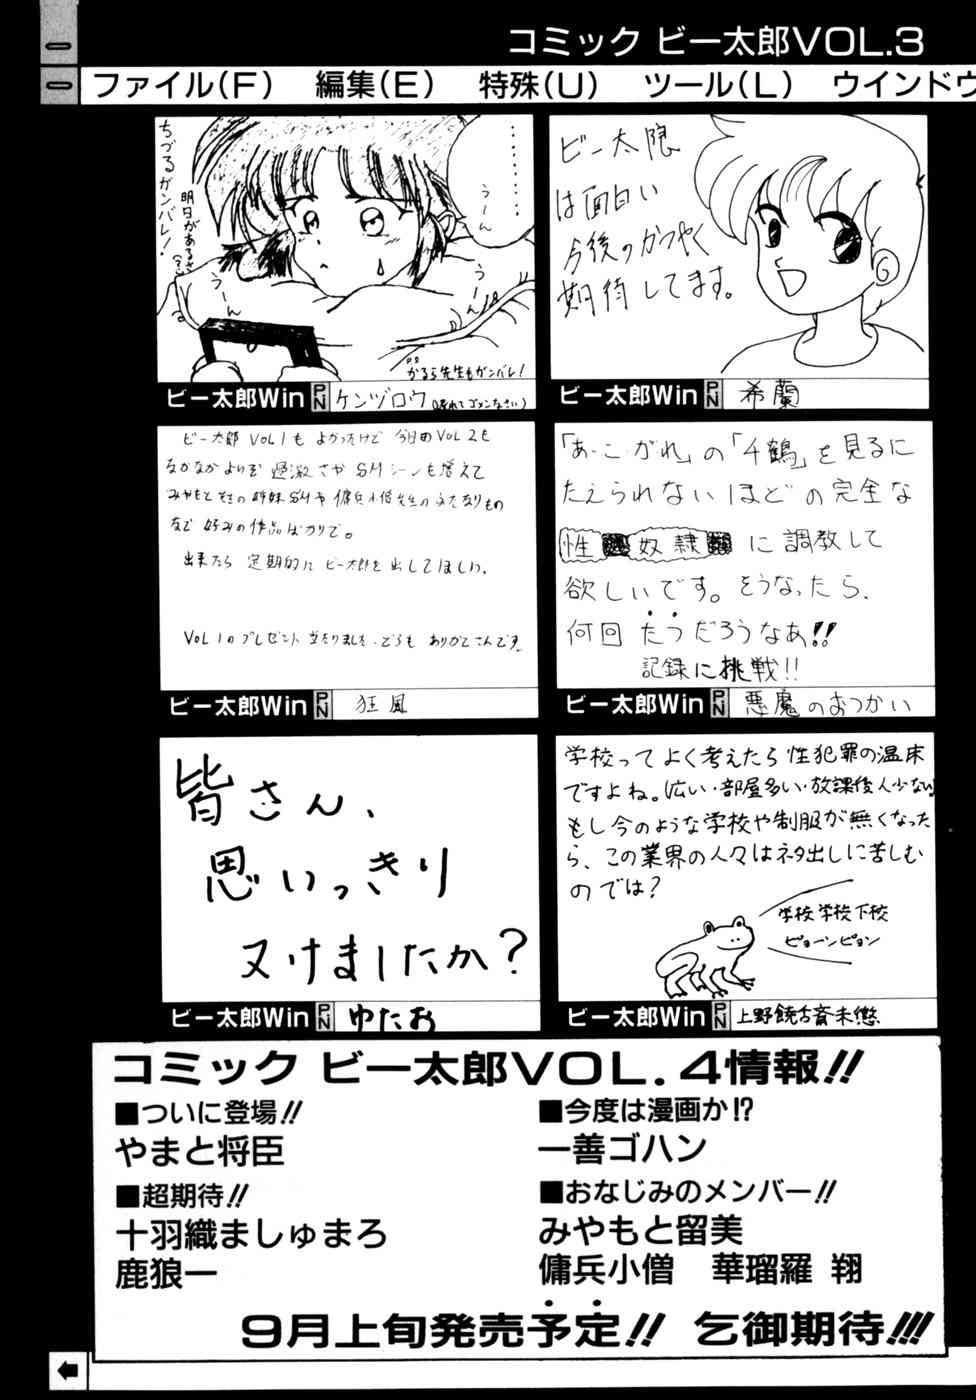 コミック ビー太郎VOL.3
ファイル(F) 編集(E) 特殊(U) ツール(L) ウインドウ
ちづるガンバレ!
明日があるさ
うーん
うーん
うーん
かるら先生もガンバレ!
ビー太郎Win PN ケンヅロウ(遅れてゴメンなさい)
ビー太限
は面白い
今後のかつやく
期待してます。
ビー太郎Win PN 希蘭
ビー太郎 VOL1も よかったけど 今回のVOL2も
なかなかよいぞ 過激さや SMシーンも増えて
みやもと先生の姉妹SMや 傭兵小僧先生のふたなりもの
など 好みの作品ばかりで。
出来たら 定期的に ビー太郎を出してほしい。
VOL1のプレゼント 当たりました。どうも ありがとさんです。
ビー太郎Win PN 狂風
「あ・こ・がれ」の「千鶴」を見るに
たえられないほどの完全な
性 奴隷 に調教して
欲しいです。そうなったら、
何回 たつだろうなあ!!
記録に挑戦!!
ビー太郎Win PN 悪魔のおつかい
皆さん、
思いっきり
ヌけましたか?
ビー太郎Win PN ゆたお
学校ってよく考えたら性犯罪の温床
ですよね。広い・部屋多い・放課後人少ない
もし今のような学校や制服が無くなった
ら、この業界の人々はネタ出しに苦しむ
のでは?
学校学校下校
ピョーンピョン
ビー太郎Win PN 上野
コミック ビー太郎VOL.4情報!!
■ついに登場!!
やまと将臣
■超期待!!
十羽織ましゅまろ
鹿狼一
■今度は漫画か!?
一善ゴハン
■おなじみのメンバー!!
みやもと留美
傭兵小僧 華瑠羅 翔
9月上旬発売予定!! 乞御期待!!!